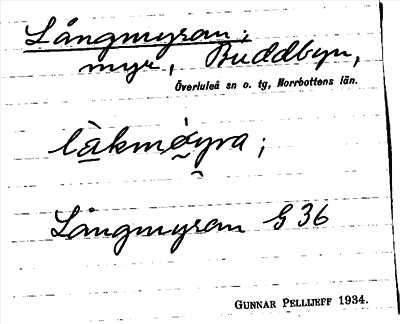 Långmyran;
myr, Buddbyn,
Överluleå sn o. tg, Norrbottens län.
làkmöyra;
Långmyran G 36
GUNNAR PELLIJEFF 1934.